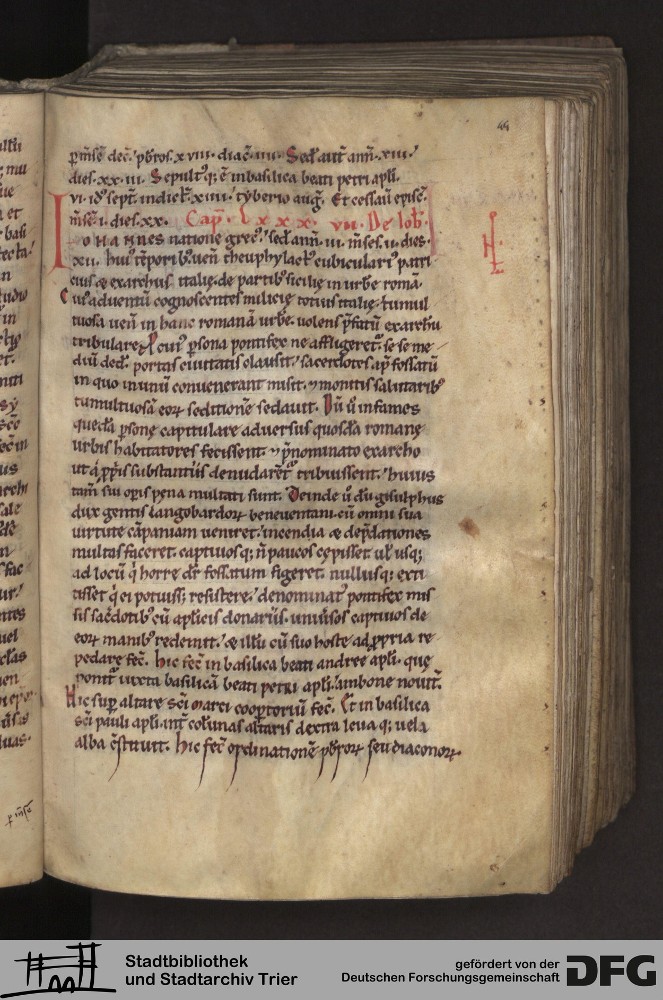 44
p mense dec̄. p̄bros. xviii. diac̄. iiii. Sed aut̄ ann̄. xiii.
dies. xx. iii. Sepult' q; ē in basilica beati petri apl̄i.
vi. id' sept̄. indict̄. xiiii. tyberio aug̃. Et cessauit episc̄.
m̄se. i. dies. xx. Cap̄. Lxxx.vii. De Ioh̄.
Iohannes natione grec'. sed ann̄. iii. m̄ses. ii. dies.
xii. hui' tēporib' uen̄ theuphylact' cubiculari' patri
cius & exarchus italię. de partib' sicilię in urbē romā.
Cui' aduentū cognoscentes milicię totius italię. tumul
tuosa uen̄ in hanc romanā urbē. uolens p̄fatū exarchū
tribulare. Cui' psona pontifex ne affligeret̄. se se me
diū ded̄. portas ciuitatis clausit. sacerdotes ap̄ fossatū
in quo in unū conuenerant misit. 7 monitis salutarib'
tumultuosā eoꝝ seditionē sedauit. Dū ū infames
quedā psonę capitulare aduersus quosdā romanę
urbis habitatores fecissent. 7 p̄nominato exarcho
ut a ppiis substantiis denudarēt̄ tribuissent. huius
tam̄ sui opis pena multati sunt. Deinde ū dū gisulphus
dux gentis langobardoꝝ beneuentani cū omni sua
uirtute cāpaniam ueniret. incendia & dep̄dationes
multas faceret. captiuosq; n̄ paucos cępisset ul̄ usq;
ad locū q̇ horrę dr̄ fossatum figeret. nullusq; exti
tisset q̇ ei potuiss; resistere. denominat' pontifex mis
sis sac̄dotib' cū apl̄icis donariis. uniūsos captiuos de
eoꝝ manib' redemit. & illū cū suo hoste ad ppria re
pedare fec̄. Hic fec̄ in basilica beati andreę apl̄i. quę
ponit̄ iuxta basilicā beati petri apl̄i. ambonē nouit̄.
Hic sup altare sc̄i marci cooptoriū fec̄. Et in basilica
sc̄i pauli apl̄i. int̄ colūnas altaris dextra leua q; uela
alba c̄stituit. Hic fec̄ ordinationē p̄broꝝ seu diaconoꝝ.
p m̄se
Stadtbibliothek
und Stadtarchiv Trier
gefördert von der
Deutschen Forschungsgemeinschaft
DFG